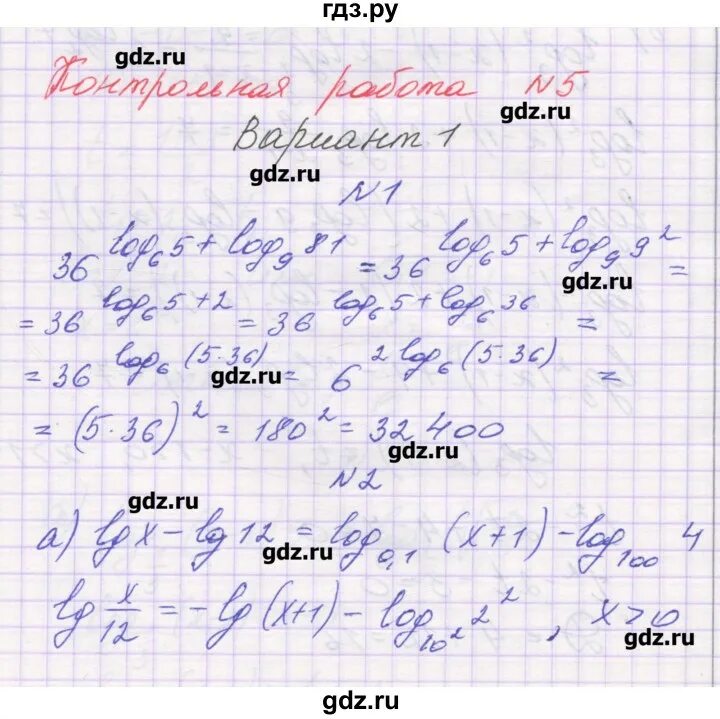 гдз.ру
gdz.ru
Контрольная работа №5
gdz.ru
Вариант 1
gdz.ru
№1
36^(log₆5 + log₉81) = 36^(log₆5 + log₉9²) =
gdz.ru
= 36^(log₆5 + 2) = 36^(log₆5 + log₆36) =
= 36^(log₆(5·36)) = 6^(2log₆(5·36)) =
gdz.ru
= (5·36)² = 180² = 32400
gdz.ru
№2
gdz.ru
а) lg x - lg 12 = log₀,₁ (x+1) - log₁₀₀ 4
gdz.ru
lg x/12 = -lg (x+1) - log₁₀² 2², x>0
gdz.ru
gdz.ru